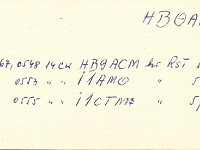 HB0A
67, 0548 14 CW HB9ACM hr Rst
0553 " " i1AMO " 5
0555 " " i1CTM7 " 5